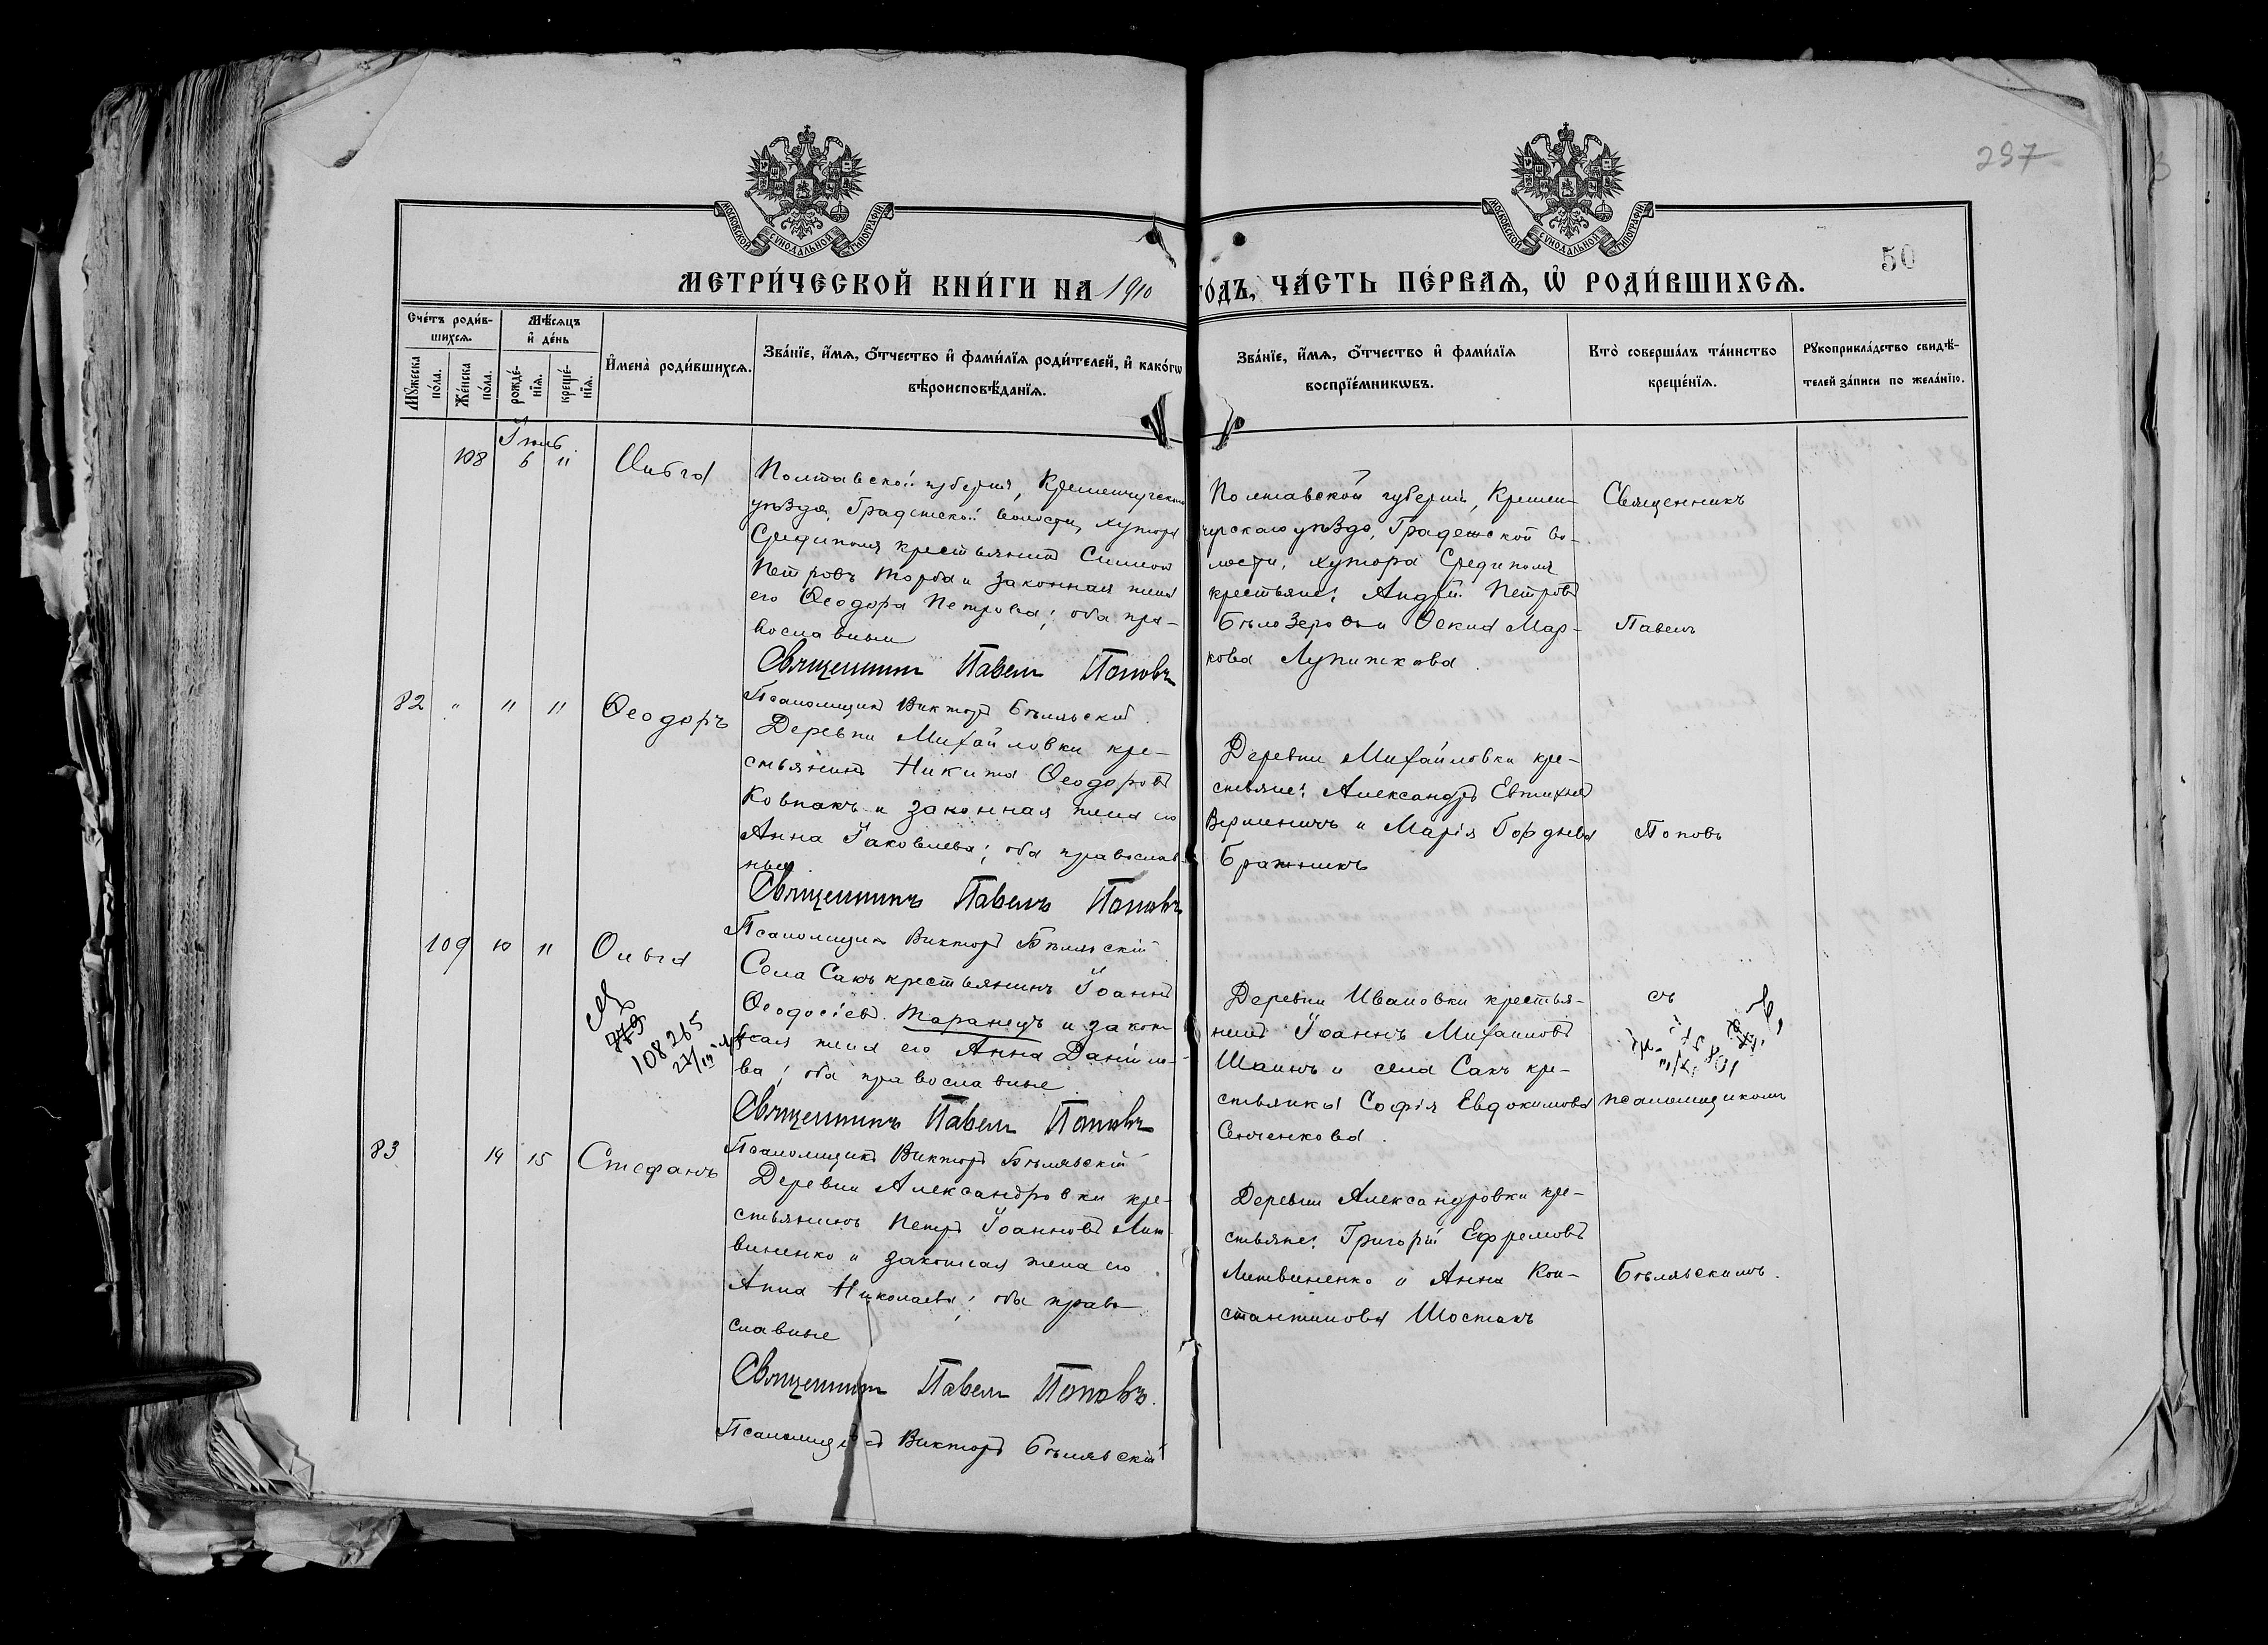 297
50
МОСКОВСКОЙ СѴНОДАЛЬНОЙ ТѴПОГРАФІИ
МОСКОВСКОЙ СѴНОДАЛЬНОЙ ТѴПОГРАФІИ
МЕТРИ́ЧЕСКОЙ КНИ́ГИ НА 1910 ГО́ДЪ, ЧА́СТЬ ПЕ́РВАѦ, Ѡ҆ РОДИ́ВШИХСѦ.
Сче́тъ роди́в-
шихсѧ.
Мѣ́сѧцъ
и҆ де́нь
Мꙋ́жеска
по́ла.
Же́нска
по́ла.
рожде́-
нїѧ.
креще́-
нїѧ.
И҆мена̀ роди́вшихсѧ.
Зва́нїе, и҆́мѧ, ѻ҆́тчество и҆ фами́лїѧ роди́телей, и҆ како́гѡ
вѣроисповѣ́данїѧ.
Зва́нїе, и҆́мѧ, ѻ҆́тчество и҆ фами́лїѧ
воспрїе́мникѡвъ.
Кто̀ соверша́лъ та́инство
креще́нїѧ.
Рꙋкоприкла́дство свидѣ́-
телей за́писи по жела́нїю.
Іюль
108 6 11 Ольга
Полтавской губерніи, Кременчугскаго
уѣзда, Градижской волости, хутора
Средиполя крестьянинъ Симеонъ
Петровъ Торба и законная жена
его Ѳеодора Петрова; оба пра-
вославные
Священникъ Павелъ Поповъ
Псаломщикъ Викторъ Бѣлявскій.
Полтавской губерніи, Кремен-
чугскаго уѣзда, Градижской во-
лости, хутора Средиполя
крестьяне: Андрей Петровъ
Бѣлозеров и Ѳекла Мар-
кова Лупижкова.
Священникъ
Павелъ
82 " " 11 Ѳеодоръ
Деревни Михайловки кре-
стьянинъ Никита Ѳеодоровъ
Ковпакъ и законная жена его
Анна Іаковлева; оба православ-
ные
Священникъ Павелъ Поповъ
Псаломщикъ Викторъ Бѣлявскій
Деревни Михайловки кре-
стьяне: Александръ Евтихіевъ
Верменичъ и Марія Гордѣева
Бражникъ
Поповъ
109 10 11 Ольга
Села Сакъ крестьянинъ Іоаннъ
Ѳеодосіевъ Таранецъ и закон-
ная жена его Анна Даніило-
ва; оба православные
Священникъ Павелъ Поповъ
Псаломщикъ Викторъ Бѣлявскій
108265
Деревни Ивановки крестья-
нинъ Іоаннъ Михаиловъ
Шаинъ и села Сакъ кре-
стьянка Софія Евдокимова
Сенченкова.
съ
псаломщикомъ
83 14 15 Стефанъ
Деревни Александровки кре-
стьянинъ Петръ Іоанновъ Лит-
виненко и законная жена его
Анна Николаева; оба право-
славные
Священникъ Павелъ Поповъ.
Псаломщикъ Викторъ Бѣлявскій
Деревни Александровки кре-
стьяне: Григорій Ефремовъ
Литвиненко и Анна Кон-
стантинова Шостакъ
Бѣлявскимъ.